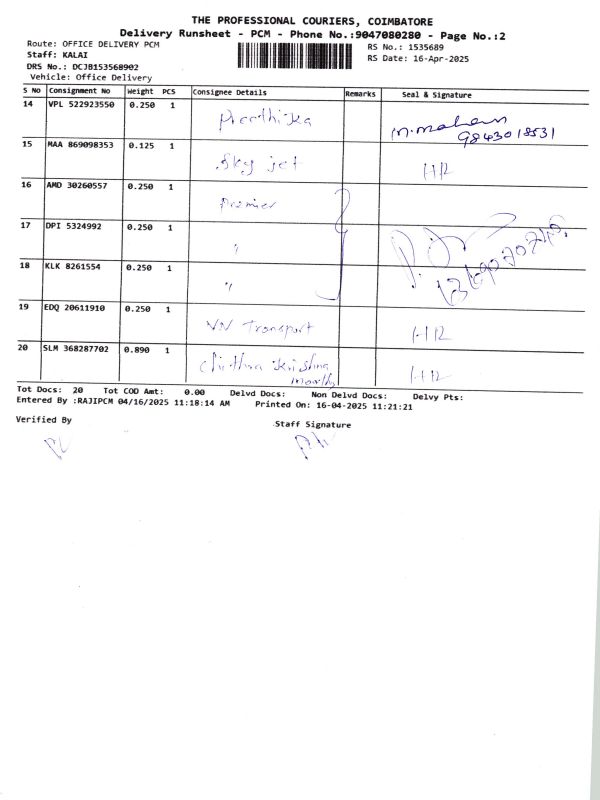 THE PROFESSIONAL COURIERS, COIMBATORE
Delivery Runsheet - PCM - Phone No.:9047080280 - Page No.:2
Route: OFFICE DELIVERY PCM RS No.: 1535689
Staff: KALAI RS Date: 16-Apr-2025
DRS No.: DCJB153568902
Vehicle: Office Delivery
S No Consignment No Weight PCS Consignee Details Remarks Seal & Signature
14 VPL 522923550 0.250 1 Preethika M.Mohan
9843018531
15 MAA 869098353 0.125 1 Sky jet HR
16 AMD 30260557 0.250 1 Premier
17 DPI 5324992 0.250 1 "
18 KLK 8261554 0.250 1 "
19 EDQ 20611910 0.250 1 VN Transport HR
20 SLM 368287702 0.890 1 Krishna HR
Tot Docs: 20 Tot COD Amt: 0.00 Delvd Docs: Non Delvd Docs: Delvy Pts:
Entered By :RAJIPCM 04/16/2025 11:18:14 AM Printed On: 16-04-2025 11:21:21
Verified By Staff Signature